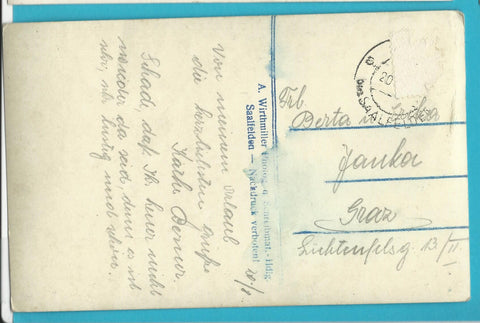 Von meinem Urlaub
die herzlichsten Grüße
Schad, daß Ihr heuer nicht
wieder da seid, denn es ist
sehr, sehr lustig und schön.
20/8
A. Wirthmiller
Saalfelden — Nachdruck verboten!
20
SAALFELDEN
Frl.
Berta
Janka
Graz
Lichtenfelsg. 13/II